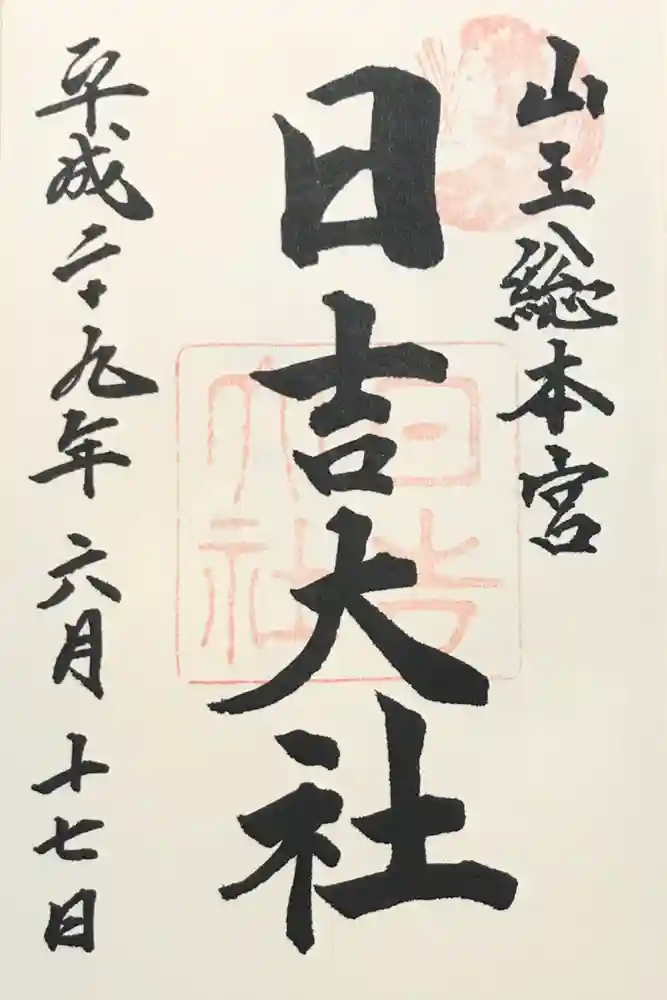 山王総本宮
日吉大社
日吉大社
平成二十九年六月十七日